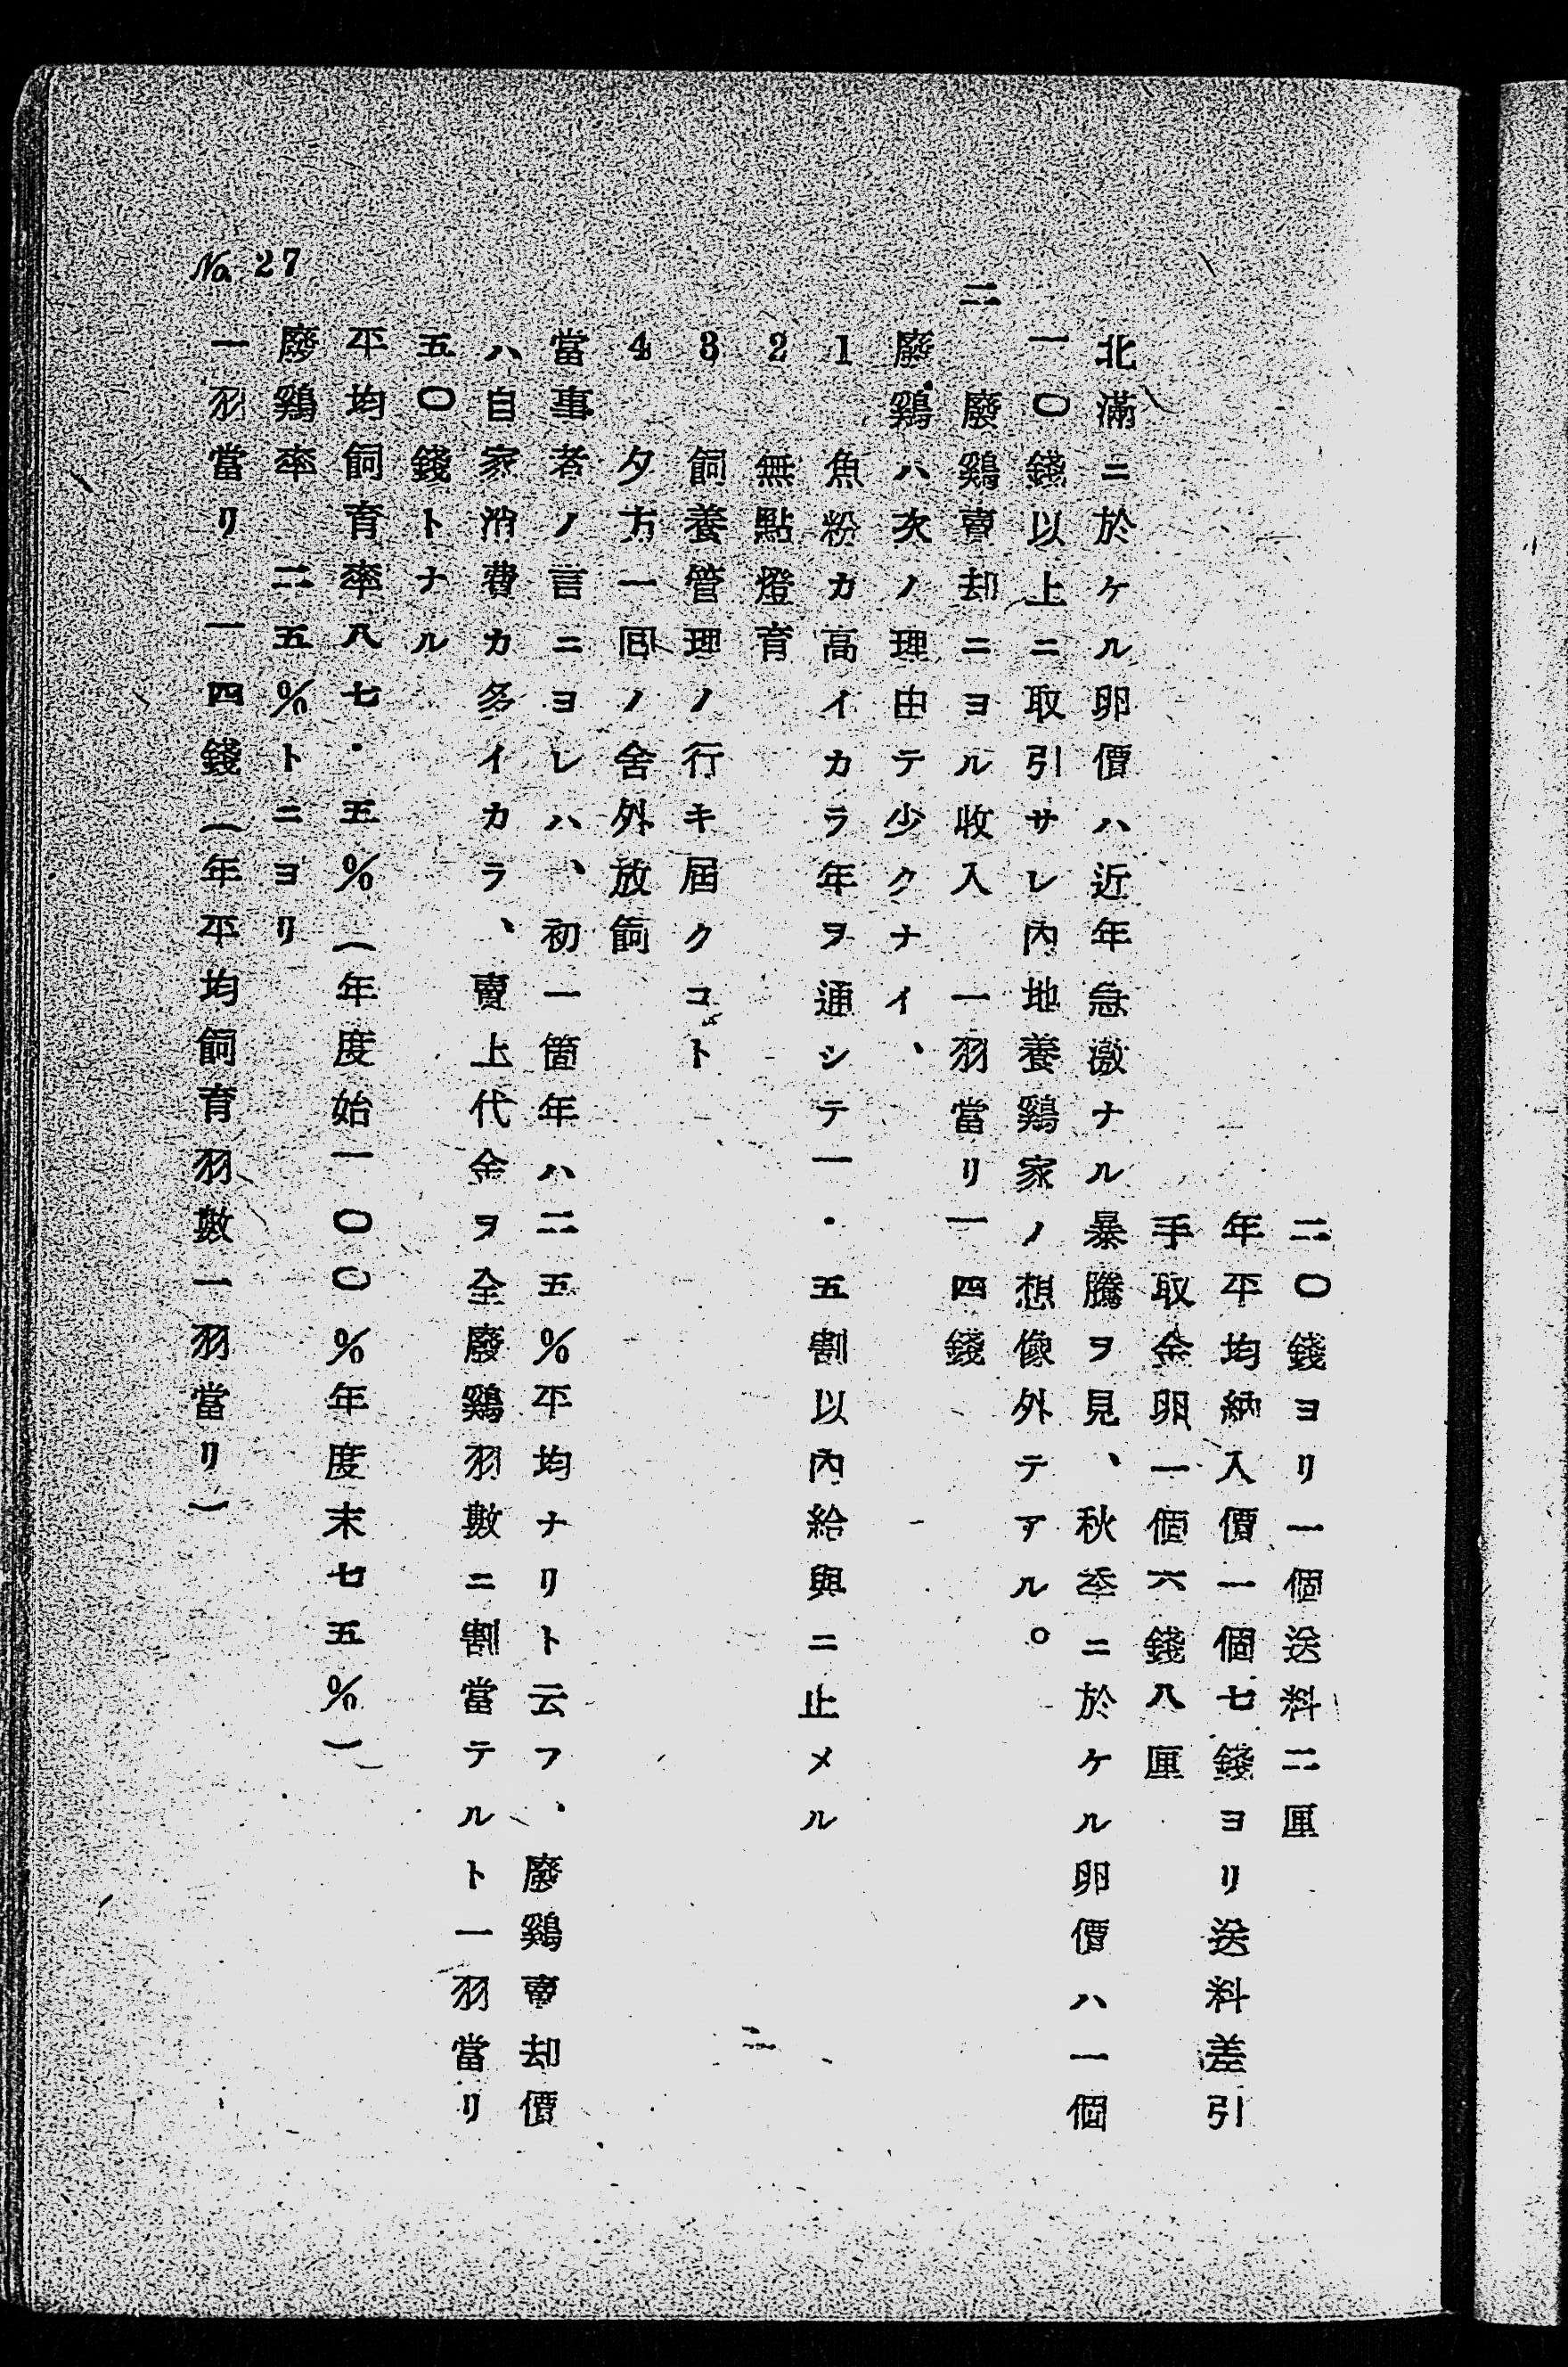 二〇錢ヨリ一個送料二厘
年平均納入價一個七錢ヨリ送料差引
手取金卵一個六錢八厘
北滿ニ於ケル卵價ハ近年急激ナル暴騰ヲ見、秋季ニ於ケル卵價ハ一個
一〇錢以上ニ取引サレ內地養鷄家ノ想像外テアル。
二　廢鷄賣却ニヨル收入　一羽當リ一四錢
廢鷄ハ次ノ理由テ少クナイ、
1　魚粉カ高イカラ年ヲ通シテ一・五割以內給與ニ止メル
2　無點燈育
3　飼養管理ノ行キ屆クコト
4　夕方一回ノ舍外放飼
當事者ノ言ニヨレハ、初一箇年ハ二五％平均ナリト云フ、廢鷄賣却價
ハ自家消費カ多イカラ、賣上代金ヲ全廢鷄羽數ニ割當テルト一羽當リ
五〇錢トナル
平均飼育率八七・五％（年度始一〇〇％年度末七五％）
廢鷄率　二五％トニヨリ
一羽當リ　一四錢（年平均飼育羽數一羽當リ）
No. 27